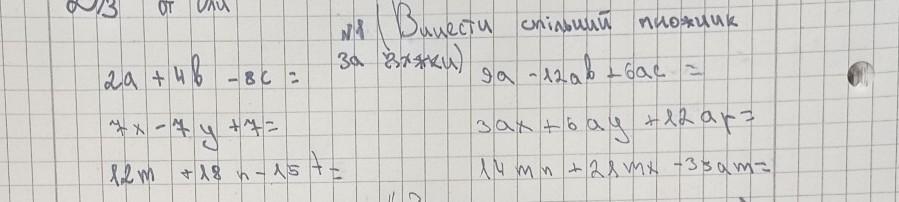 №1 (Винести спільний множник за дужки)
2a + 4b - 8c =
9a - 12ab + 6ac =
7x - 7y + 7 =
3ax + 6ay + 12ar =
12m + 18n - 15t =
14mn + 21mx - 35am =